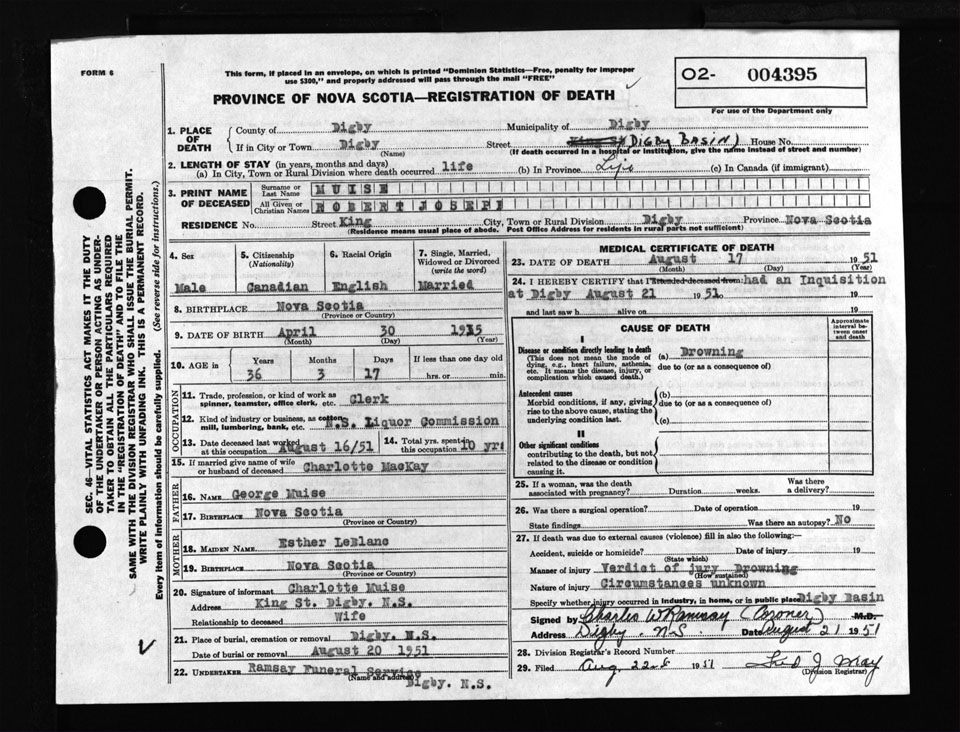 FORM 6
This form, if placed in an envelope, on which is printed "Dominion Statistics—Free, penalty for improper
use $300," and properly addressed will pass through the mail "FREE"
PROVINCE OF NOVA SCOTIA—REGISTRATION OF DEATH
O2- 004395
For use of the Department only
SEC. 46—VITAL STATISTICS ACT MAKES IT THE DUTY
OF THE UNDERTAKER OR PERSON ACTING AS UNDER-
TAKER TO OBTAIN ALL THE PARTICULARS REQUIRED
IN THE "REGISTRATION OF DEATH" AND TO FILE THE
SAME WITH THE DIVISION REGISTRAR WHO SHALL ISSUE THE BURIAL PERMIT.
WRITE PLAINLY WITH UNFADING INK. THIS IS A PERMANENT RECORD.
Every item of information should be carefully supplied. (See reverse side for instructions.)
1. PLACE OF DEATH
County of Digby Municipality of Digby
If in City or Town Digby (Name) Street (DIGBY BASIN) House No.
(If death occurred in a hospital or institution, give the name instead of street and number)
2. LENGTH OF STAY (in years, months and days)
(a) In City, Town or Rural Division where death occurred life (b) In Province Life (c) In Canada (if immigrant)
3. PRINT NAME OF DECEASED
Surname or Last Name MUISE
All Given or Christian Names ROBERT JOSEPH
RESIDENCE No. Street King City, Town or Rural Division Digby Province Nova Scotia
(Residence means usual place of abode. Post Office Address for residents in rural parts not sufficient)
4. Sex Male
5. Citizenship (Nationality) Canadian
6. Racial Origin English
7. Single, Married, Widowed or Divorced (write the word) Married
8. BIRTHPLACE Nova Scotia
(Province or Country)
9. DATE OF BIRTH April 30 1915
(Month) (Day) (Year)
10. AGE in Years 36 Months 3 Days 17 If less than one day old hrs. or min.
OCCUPATION
11. Trade, profession, or kind of work as spinner, teamster, office clerk, etc. Clerk
12. Kind of industry or business, as cotton mill, lumbering, bank, etc. N.S. Liquor Commission
13. Date deceased last worked at this occupation August 16/51
14. Total yrs. spent in this occupation 10 yrs
15. If married give name of wife or husband of deceased Charlotte MacKay
FATHER
16. NAME George Muise
17. BIRTHPLACE Nova Scotia
(Province or Country)
MOTHER
18. MAIDEN NAME Esther LeBlanc
19. BIRTHPLACE Nova Scotia
(Province or Country)
20. Signature of informant Charlotte Muise
Address King St. Digby, N.S.
Relationship to deceased Wife
21. Place of burial, cremation or removal Digby. N.S.
Date of burial or removal August 20 1951
22. UNDERTAKER Ramsay Funeral Service
(Name and address) Digby. N.S.
MEDICAL CERTIFICATE OF DEATH
23. DATE OF DEATH August 17 1951
(Month) (Day) (Year)
24. I HEREBY CERTIFY that I attended deceased from had an Inquisition
at Digby August 21 1951. 19
and last saw h alive on 19
CAUSE OF DEATH
Approximate interval between onset and death
I
Disease or condition directly leading to death (a) Drowning
(This does not mean the mode of dying, e.g., heart failure, asthenia, etc. It means the disease, injury, or complication which caused death.)
due to (or as a consequence of)
Antecedent causes (b)
Morbid conditions, if any, giving rise to the above cause, stating the underlying condition last.
due to (or as a consequence of)
(c)
II
Other significant conditions
contributing to the death, but not related to the disease or condition causing it.
25. If a woman, was the death associated with pregnancy? Duration weeks. Was there a delivery?
26. Was there a surgical operation? Date of operation 19
State findings Was there an autopsy? No
27. If death was due to external causes (violence) fill in also the following:—
Accident, suicide or homicide? Date of injury 19
(State which)
Manner of injury Verdict of jury Drowning
(How sustained)
Nature of injury Circumstances unknown
Specify whether injury occurred in industry, in home, or in public place Digby Basin
Signed by Charles W Ramsay (Coroner) M.D.
Address Digby. N.S. Date August 21 1951
28. Division Registrar's Record Number
29. Filed Aug. 22nd 1951 Fred J May
(Division Registrar)